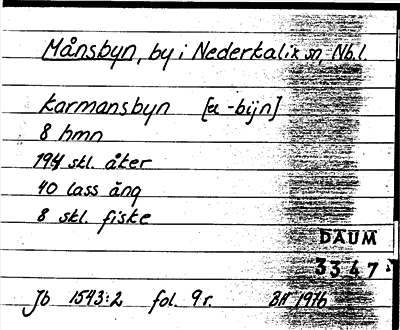 Månsbyn, by i Nederkalix sn Nb.l.
Karmansbyn [a -bijn]
8 hmn
194 skl. åker
40 lass äng
8 skl. fiske
DAUM
3347
Jb 1543:2 fol. 9r. BH 1976